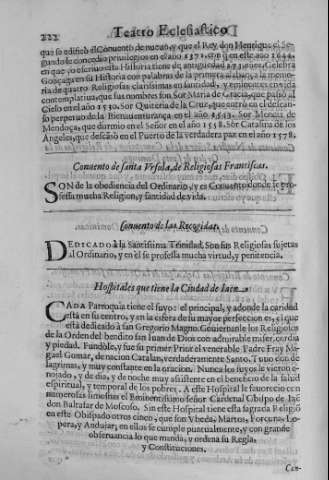 222 Teatro Eclesiastico
que se edificò el Conuento de nueuo, y que el Rey don Henrique el Se-
gundo le concediò priuilegios en el año 1371. con que en este año 1644.
en que yo escriuo esta Historia tiene de antiguedad
Gonçaga en su Historia con palabras de la primera alabança la memo-
ria de quatro Religiosas clarissimas en santidad, y eminentes en vida
contemplatiua, que sus nombres son Sor Maria de Gracia, que passò al
Cielo en el año 1530. Sor Quiteria de la Cruz, que entrò en el descan-
so perpetuo de la Bienauenturança en el año 1543. Sor Mencia de
Mendoça, que durmiò en el Señor en el año 1558. Sor Catalina de los
Angeles, que descãsò en el Puerto de la verdadera paz en el año 1578.
Conuento de santa Vrsola, de Religiosas Franciscas.
SON de la obediencia del Ordinario, y es Conuento donde se pro-
fessa mucha Religion, y santidad de vida.
Conuento de las Recogidas.
DEDICADO à la Santissima Trinidad. Son sus Religiosas sujetas
al Ordinario, y en èl se professa mucha virtud, y penitencia.
Hospitales que tiene la Ciudad de Iaen.
CADA Parroquia tiene el suyo: el principal, y adonde la caridad
està en su centro, y en la esfera de su mayor perfeccion es, el que
està dedicado à san Gregorio Magno. Gouiernanle los Religiosos
de la Orden del bendito san Iuan de Dios con admirable misericordia
y piedad. Fundòle, y fue su primer Prior el venerable Padre Fray Mi-
guel Gomar, de nacion Catalan, verdaderamente Santo. Tuuo don de
lagrimas, y muy constante en la oracion. Nunca los suyos le vieron e-
nojado, y de dia, y de noche muy assistente en el beneficio de la salud
espiritual, y temporal de los pobres. A este Hospital le fauoreciò con
numerosas limosnas el Eminentissimo señor Cardenal Obispo de Iaẽ
don Baltasar de Moscoso. Sin este Hospital tiene esta sagrada Religiõ
en este Obispado otros cinco, que son Vbeda, Martos, Porcuna, Lope-
ra, y Andujar, en ellos se cumple puntualmente, y con grande
obseruancia lo que manda, y ordena su Regla,
y Constituciones.
Con-